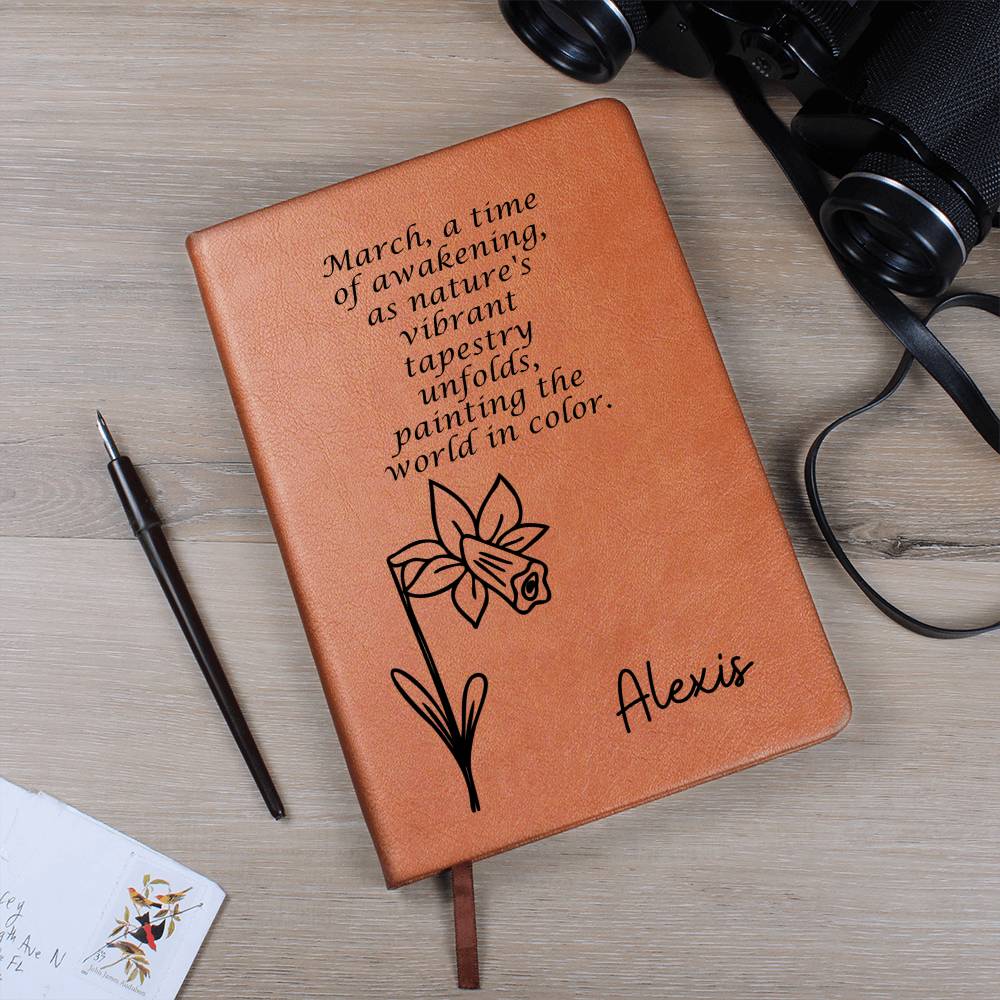 March, a time
of awakening,
as nature's
vibrant
tapestry
unfolds,
painting the
world in color.
Alexis
ey
Ave N
FL
37
John James Audubon